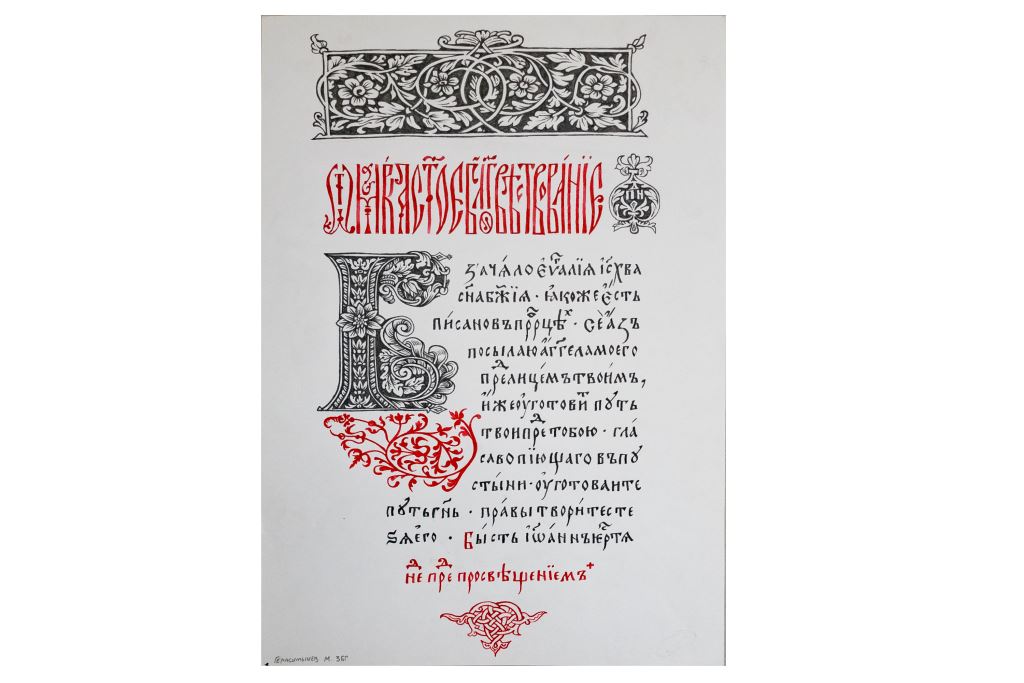 Ѿ мрка ст҃ое бл҃говѣствованїе
Зачѧло єѵⷢ҇алїѧ іс҃ хв҃а
сн҃а бж҃їѧ · ꙗкоже є҆сть
писано въ прⷪ҇рцѣⷯ · се а҆зъ
посылаю а҆гг҃ела моего
преⷣ лицемъ твоимъ,
и҆же оуготовиⷮ путь
твои преⷣ тобою · гла
с вопїющаго въ пу
стыни · оуготоваите
путь гн҃ь · правы творите сте
ѕѧ е҆го · Бысть іѡ҆аннъ крⷭ҇тѧ
неⷣ преⷣ просвѣщенїемъ
Герасимычев М. 3БГ